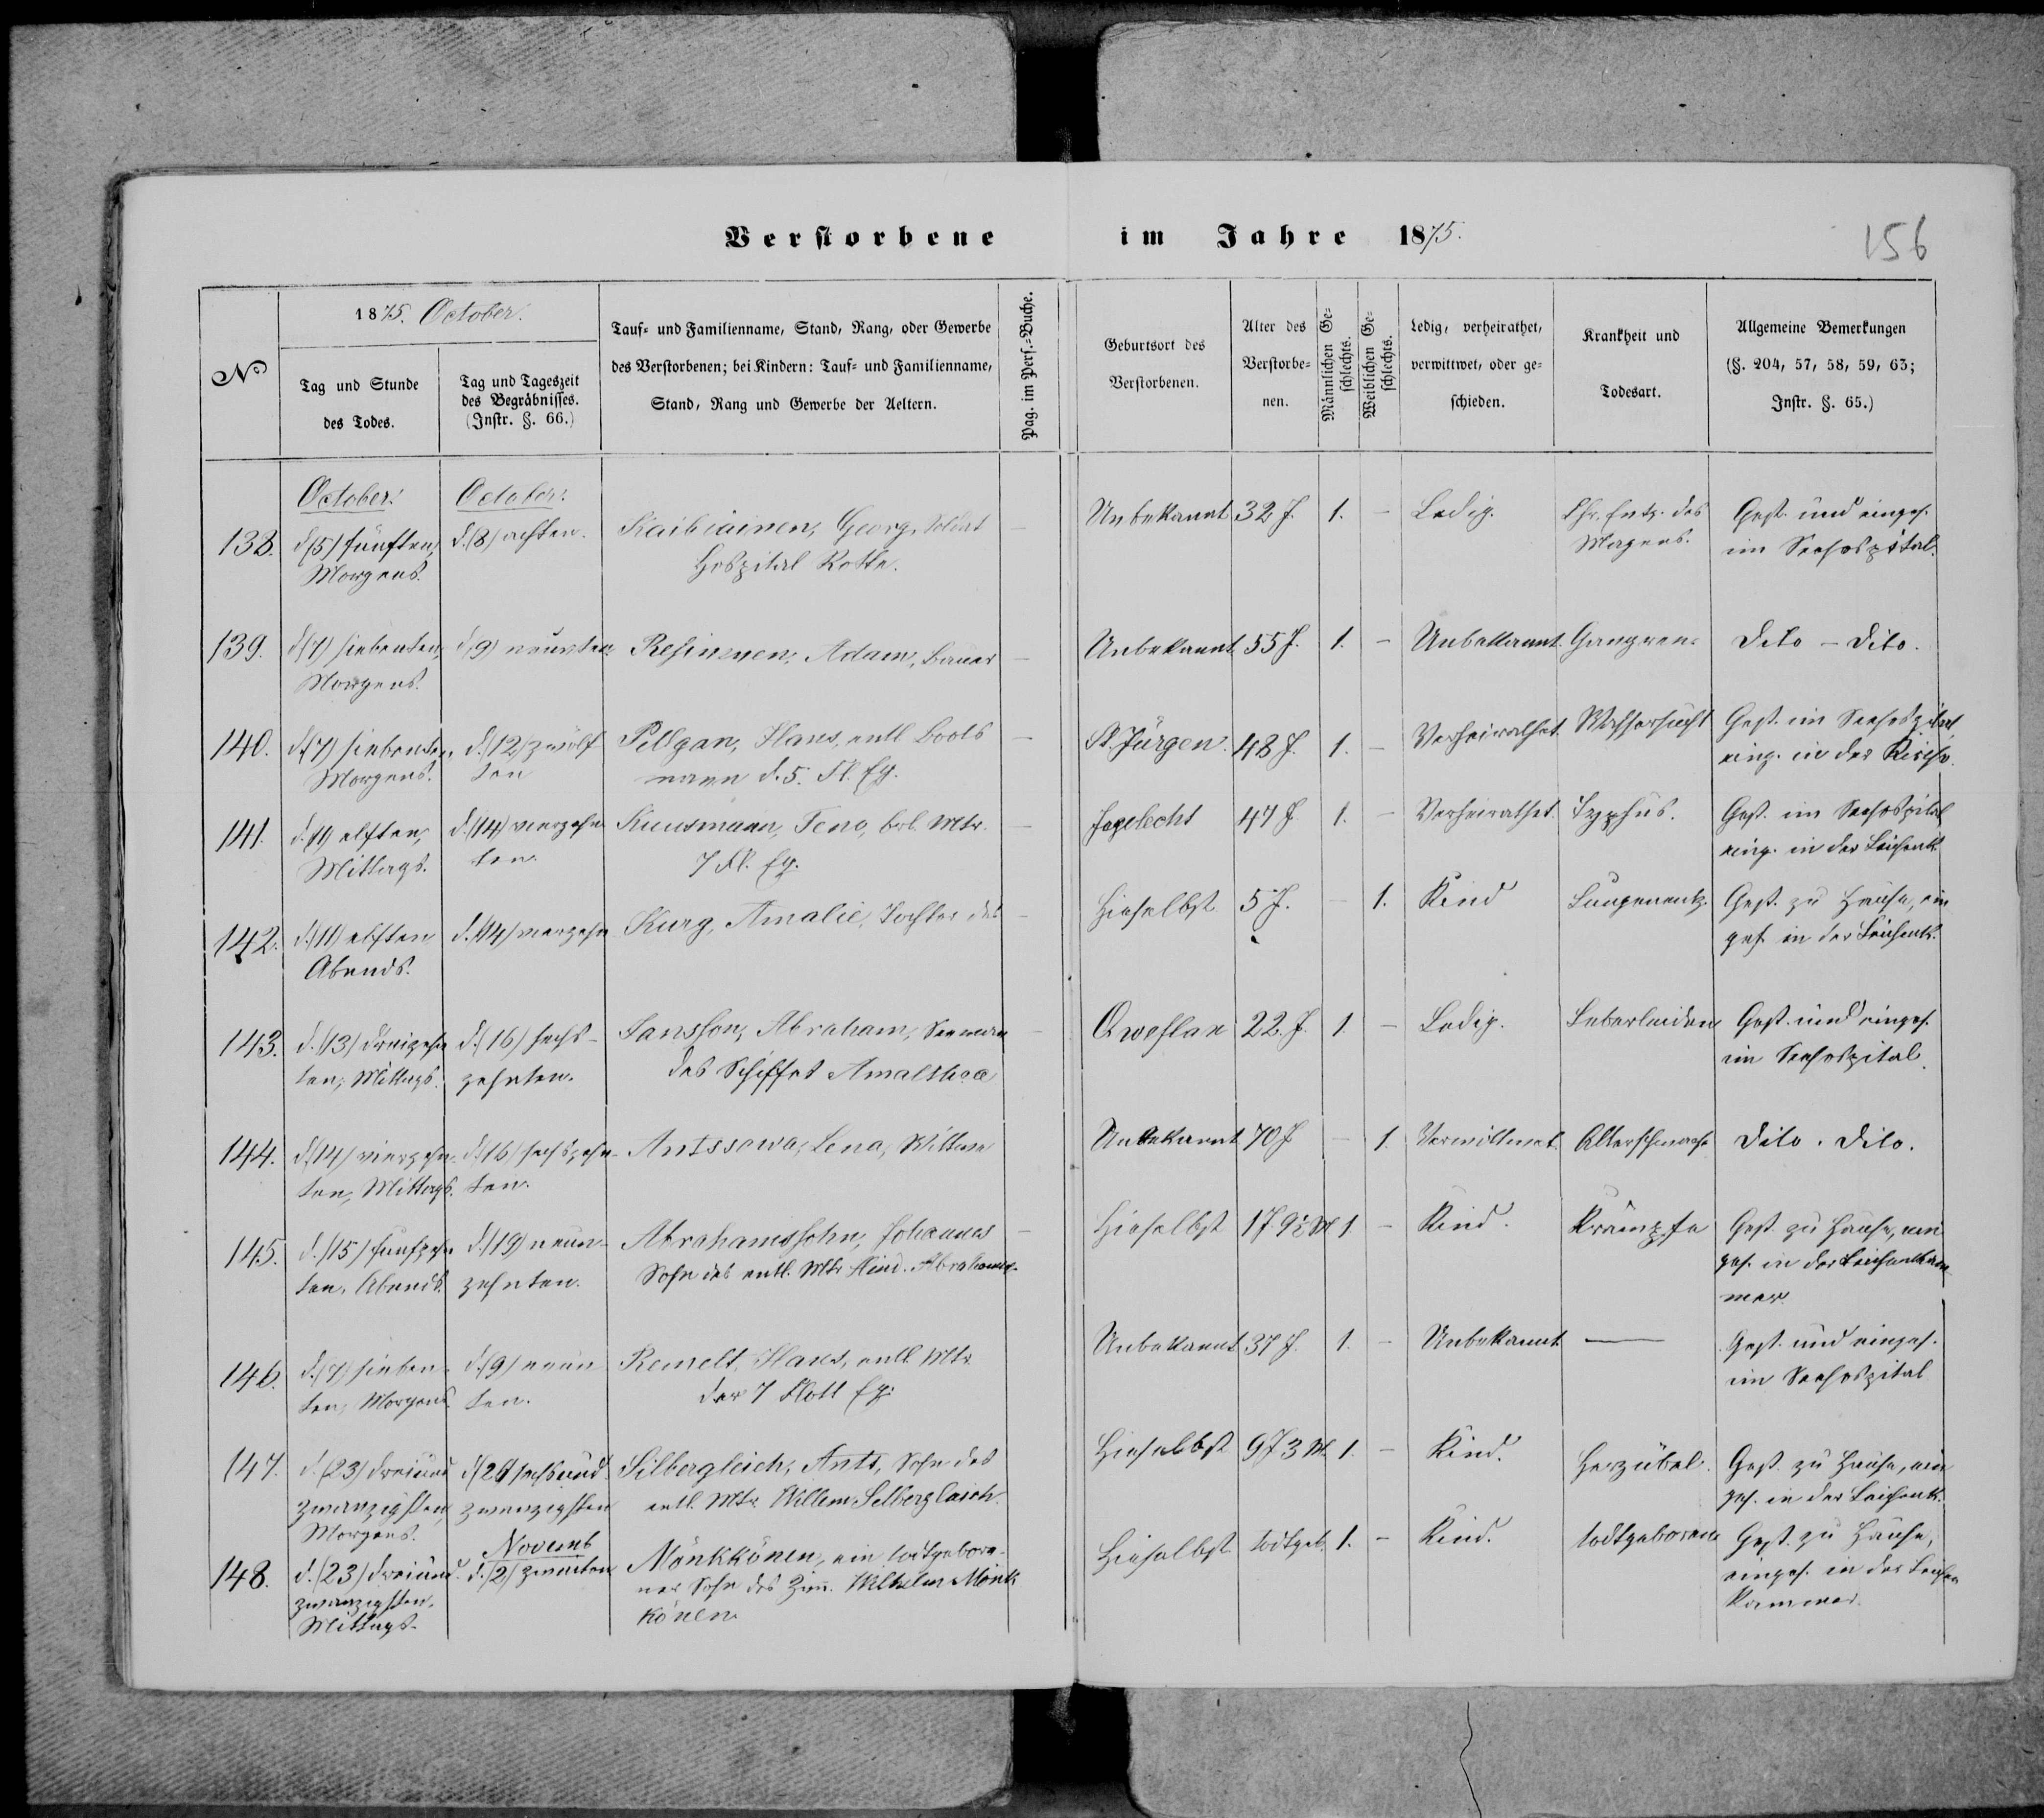 Verstorbene im Jahre 1875.
156
No
1875. October.
Tag und Stunde
des Todes.
Tag und Tageszeit
des Begräbnisses.
(Instr. §. 66.)
Tauf= und Familienname, Stand, Rang, oder Gewerbe
des Verstorbenen; bei Kindern: Tauf= und Familienname,
Stand, Rang und Gewerbe der Aeltern.
Pag. im Pers.=Buche.
Geburtsort des
Verstorbenen.
Alter des
Verstorbe=
nen.
Männlichen Ge=
schlechts.
Weiblichen Ge=
schlechts.
Ledig, verheirathet,
verwittwet, oder ge=
schieden.
Krankheit und
Todesart.
Allgemeine Bemerkungen
(§. 204, 57, 58, 59, 63;
Instr. §. 65.)
October.
October.
138.
d. (5) fünften,
Morgens.
d. (8) achten.
Kaibiainen, Georg, Soldat
Hospital Rotte.
Unbekannt
32 J.
1.
Ledig.
des
Magens.
Gest. und einges.
im Seehospital.
139.
d. (7) siebenten,
Morgens.
d. (9) neunten
Resinenen, Adam, Bauer
Unbekannt
55 J.
1.
Unbekannt.
Gangren.
Dito – Dito.
140.
d. (7) siebenten,
Morgens.
d. (12) zwölf
ten
Pellgan, Hans, entl Boots
mann d. 5. Fl. Eq.
St. Jürgen.
48 J.
1.
Verheirathet
Wassersucht
Gest. im Seehospital
eing. in der Kirche.
141.
d. 11) elften,
Mittags.
d. (14) vierzehn
ten.
Kuusmann, Teno, Mtr.
7 Fl. Eq.
47 J.
1.
Verheirathet.
Typhus.
Gest. im Seehospital
eing. in der Leichenk.
142.
d. (11) elften
Abends.
d. (14) vierzehn
Kurg, Amalie, Tochter des
Hieselbst
5 J.
1.
Kind
Lungenentz.
Gest. zu Hause, ein
ges. in der Leichenk.
143.
d. (13) dreizehn
ten, Mittags.
d. (16) sechs-
zehnten.
Jansson, Abraham, Seemann
des Schiffes Amalthea
22 J.
1.
Ledig.
Leberleiden
Gest. und einges.
im Seehospital.
144.
d. (14) vierzehn-
ten, Mittags.
d. (16) sechszehn-
ten.
Antssowa, Lena, Wittwe
Unbekannt
70 J
1.
Verwittwet.
Altersschwäche
Dito. Dito.
145.
d. (15) fünfzehn
ten, Abends.
d. (19) neun-
zehnten.
Abrahamssohn, Johannes
Sohn des entl. Mtr Hind. Abrahams-
Hieselbst
1 J 9½ M
1
Kind.
Krämpfe
Gest. zu Hause, ein
ges. in der Leichenkam
mer
146.
d. (7) sieben-
ten, Morgens.
d. (9) neun
ten.
Remelt, Hans, entl. Mtr
der 7 Flott Eq.
Unbekannt
37 J.
1.
Unbekannt.
Gest. und einges.
im Seehospital
147.
d. (23) dreiund
zwanzigsten,
Morgens.
d. (26) sechsund
zwanzigsten
Silbergleich, Ants, Sohn des
entl. Mtr Willem Silberglasch.
Hieselbst
9 J 3 M.
1.
Kind.
Herzübel.
Gest. zu Hause, ein
ges. in der Leichenk.
Novemb
148.
d. (23) dreiund
zwanzigsten,
Mittags
d. (2) zweiten
Mönkkönen, ein todtgebore-
ner Sohn des Zim. Wilhelm Mönk
könen
Hieselbst
todtgeb.
1.
Kind.
todtgeboren
Gest. zu Hause,
einges. in der Leichen
kammer.